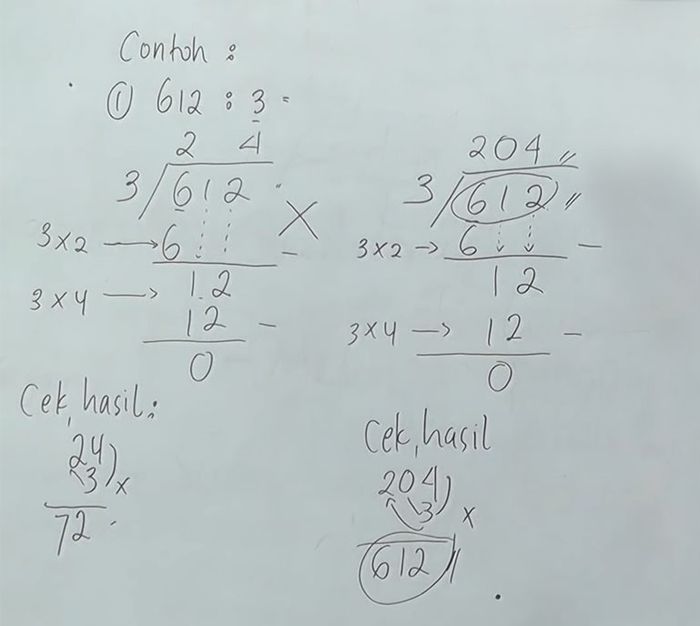 Contoh :
① 612 : 3 =
2 4
3/612
3x2 → 6 -
3x4 → 1.2
12 -
0
Cek, hasil :
24
3 x
72
X
204 //
3/612 //
3x2 → 6 -
12
3x4 → 12 -
0
Cek, hasil
204
3 x
612 //